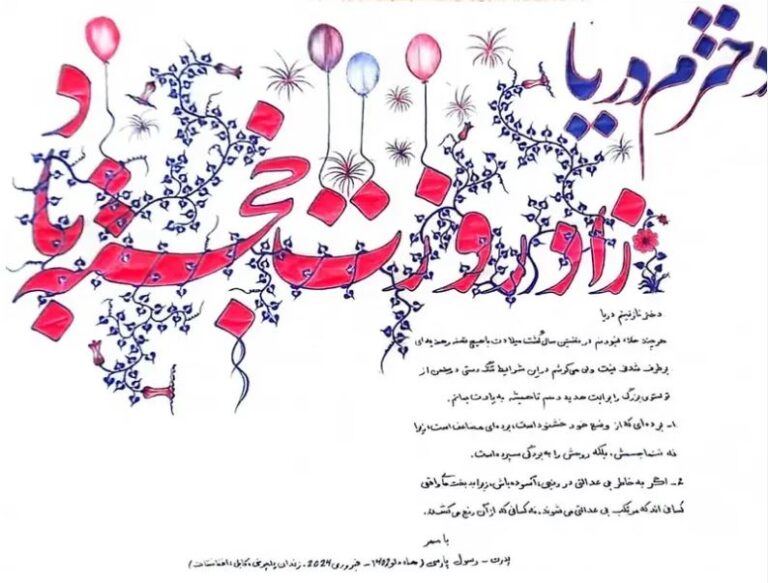 دخترم دریا
زادروزت خجسته باد
دختر نازنینم دریا
هرچند خلاء نبودنم در هفتمین سال‌گشت میلادت با هیچ نقد و هدیه‌ای
برطرف شدنی نیست ولی می‌کوشم در این شرایط تنگ دستی درسی از
تولستوی بزرگ را برایت هدیه دهم تا همیشه به یادت بماند.
۱- برده‌ای که از وضع خود خشنود است، برده‌ای مضاعف است، زیرا
نه تنها جسمش، بلکه روحش را به بردگی سپرده است.
۲- اگر به خاطر بی عدالتی در رنجی، آسوده باش، زیرا بدبخت‌های واقعی
کسانی اند که مرتکب بی عدالتی می‌شوند. نه کسانی که از آن رنج می‌کشند.
با مهر
پدرت - رسول پارسی ( - فبروری 2024. زندان پلچرخی، کابل، افغانستان)